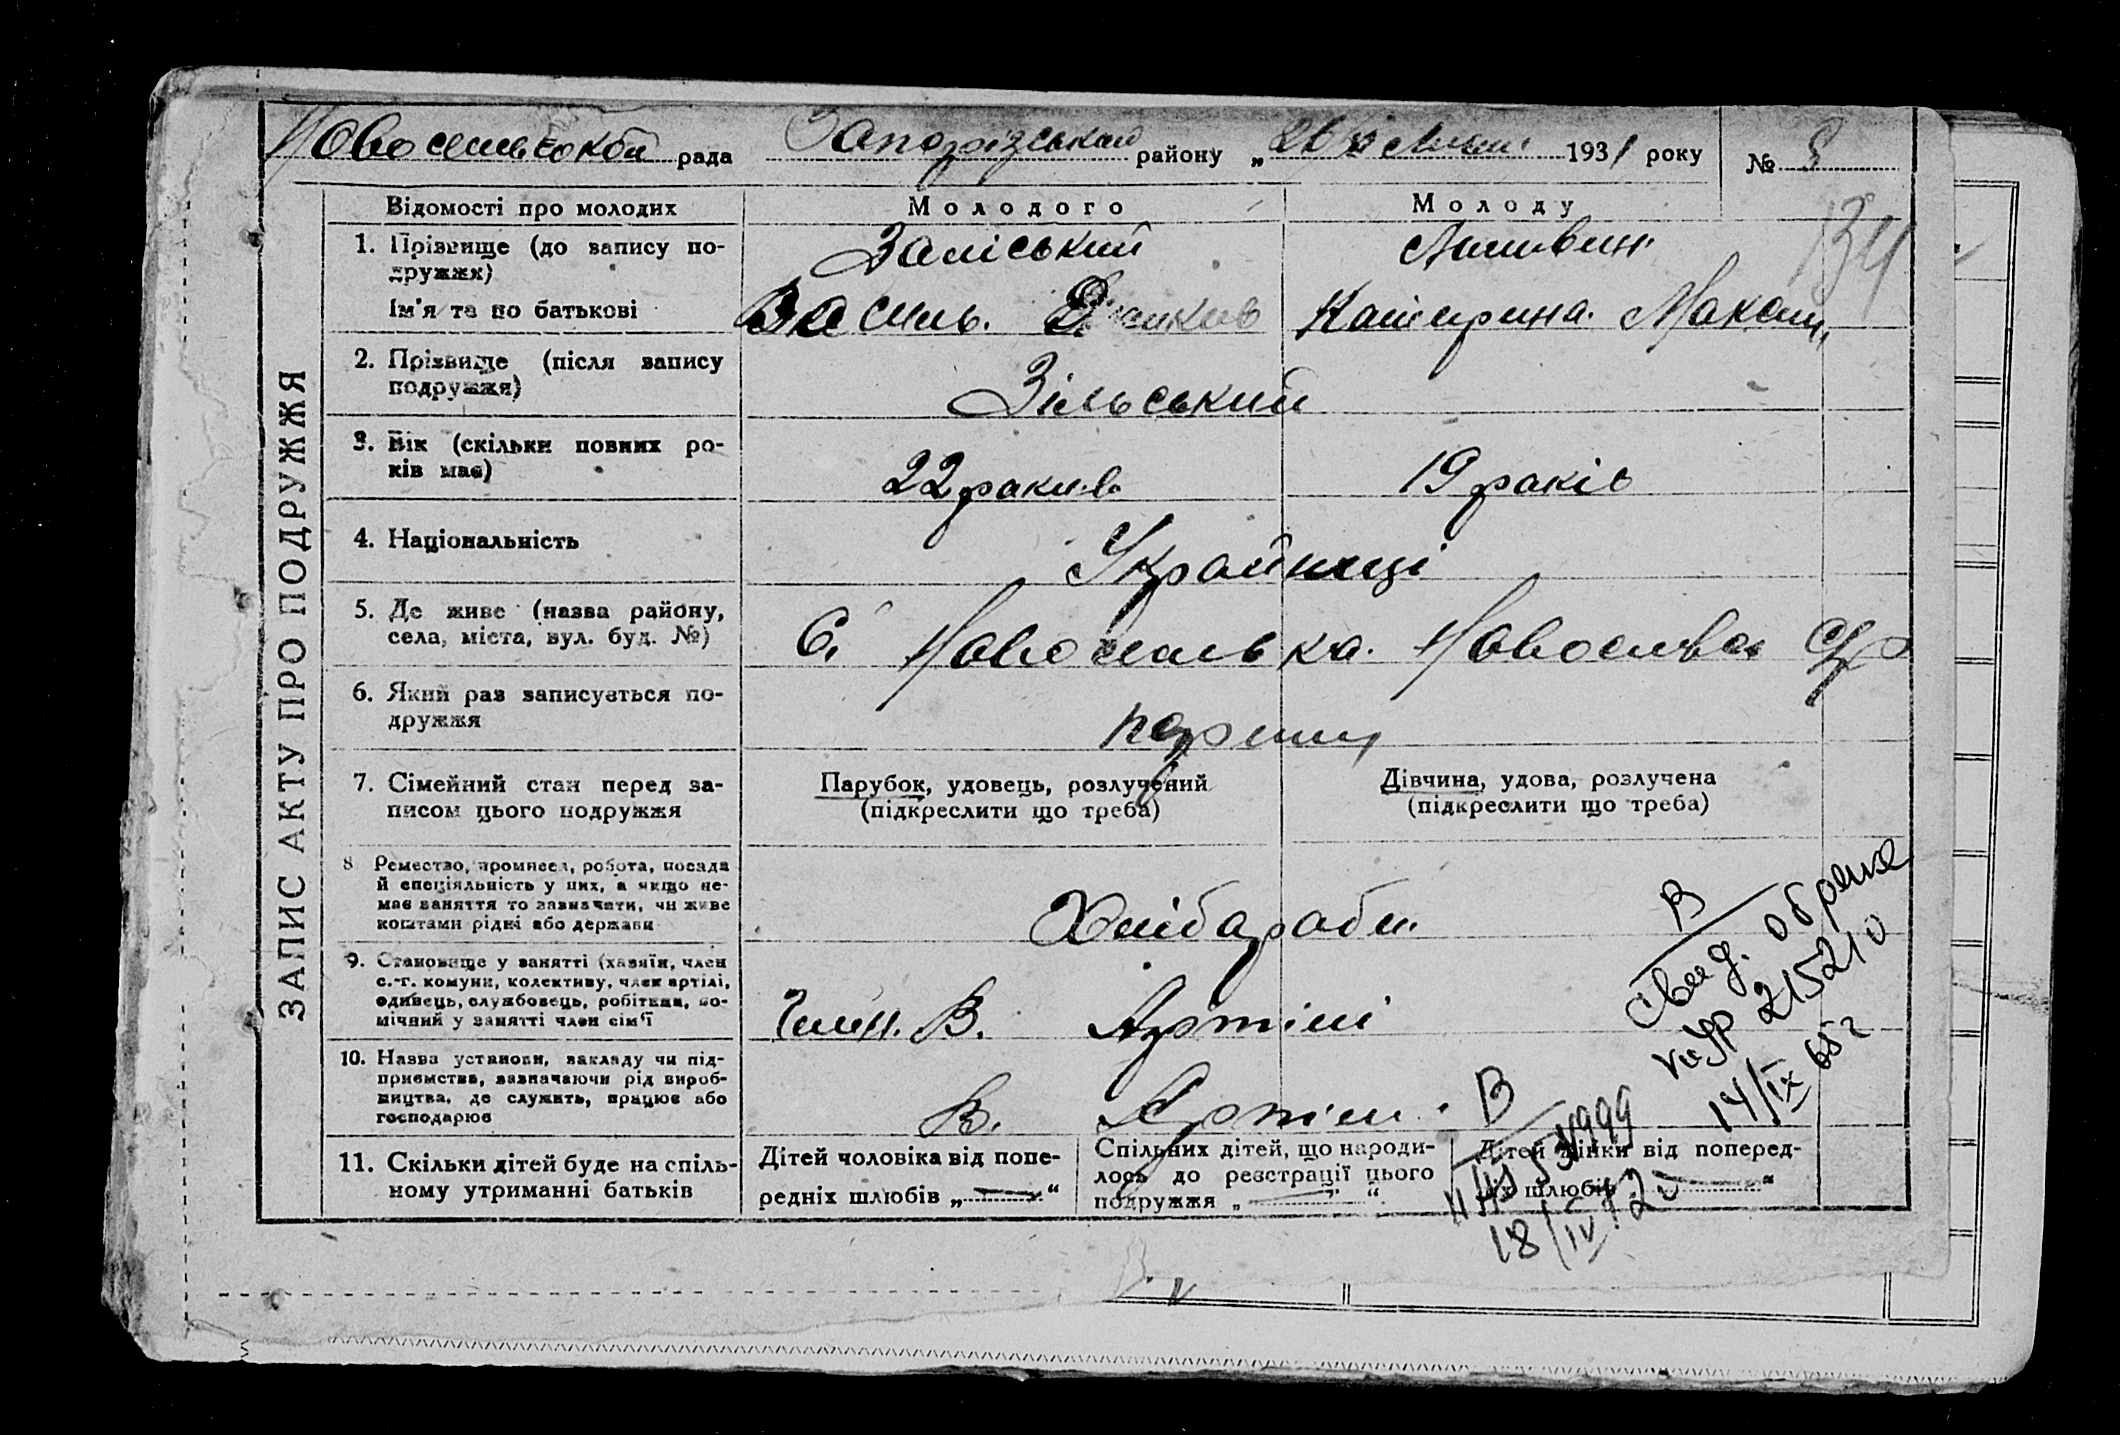 Новосельськой рада Запорізський району „ 26 1931 року № 8
134
ЗАПИС АКТУ ПРО ПОДРУЖЖЯ
Відомості про молодих Молодого Молоду
1. Прізвище (до запису по-
дружжя) Заліський Литвин
Ім'я та по батькові Василь. Катерина. Максим,,
2. Прізвище (після запису
подружжя) Зільський
3. Вік (скільки повних ро-
ків має) 22 ракив 19 раків
4. Національність Украйнці
5. Де живе (назва району,
села, міста, вул. буд. №) С. Новоселька.
6. Який раз записується по-
дружжя перши
7. Сімейний стан перед за-
писом цього подружжя
Парубок, удовець, розлучений
(підкреслити що треба)
Дівчина, удова, розлучена
(підкреслити що треба)
8 Ремество, промисел, робота, посада
й спеціяльність у них, а якщо не-
має заняття то зазначити, чи живе
коштами рідні або держави Хлібароби
9. Становище у занятті (хазяїн, член
с.-г. комуни, колективу, член артілі,
одинець, службовець, робітник, по-
мічний у занятті член сім'ї Член. В. Артілі
10. Назва установи, закладу чи під-
приємства, зазначаючи рід вироб-
ництва, де служить, працює або
господарює В. Артілі
11. Скільки дітей буде на спіль-
ному утриманні батьків
Дітей чоловіка від попе-
редніх шлюбів „ — “
Спільних дітей, що народи-
лось до реєстрації цього
подружжя „ — “
Дітей жінки від поперед-
ніх шлюбів — “
В
свид. о браке
215210
14/IX 65 г
В
18/IV